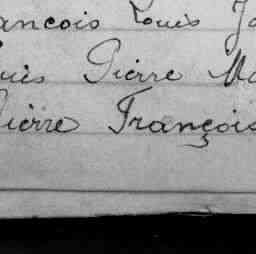 ancois Louis Ja
uis Pierre Ma
Pierre François